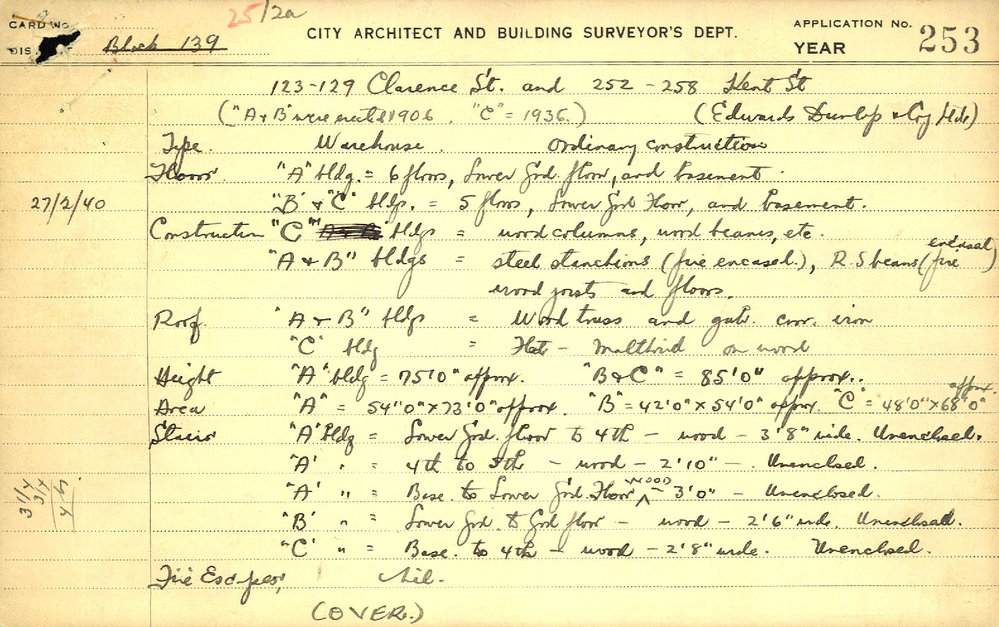 25/2a
CARD No.
DIS Block 139
CITY ARCHITECT AND BUILDING SURVEYOR'S DEPT.
APPLICATION No.
YEAR
253
123-129 Clarence St. and 252-258 Kent St
("A & B" were erected 1906. "C" = 1936.) (Edwards Dunlop & Coy Ltd)
Type. Warehouse. Ordinary construction
Floors. "A" bldg. = 6 floors, Lower Grd. floor, and basement.
27/2/40
"B" & "C" bldgs. = 5 floors, Lower Grd Floor, and basement.
Construction "C" bldgs = wood columns, wood beams, etc.
"A & B" bldgs = steel stanchions (fire encased.), R.S beams (fire encased)
wood joists and floors.
Roof. "A & B" bldgs = Wood truss and galv. corr. iron
"C" bldg = Flat - Malthoid on wood
Height "A" bldg = 75'0" approx. "B & C" = 85'0" approx..
Area "A" = 54'0" x 73'0" approx. "B" = 42'0" x 54'0" approx. "C" = 48'0" x 68'0" approx.
Stairs "A" bldg = Lower Grd. floor to 4th - wood - 3'8" wide. Unenclosed.
"A' " = 4th to 5th - wood - 2'10" - . Unenclosed.
"A' " = Base. to Lower Grd Floor WOOD - 3'0" - Unenclosed.
"B' " = Lower Grd. to Grd floor - wood - 2'6" wide. Unenclosed.
"C' " = Base. to 4th - wood - 2'8" wide. Unenclosed.
Fire Escapes, Nil.
(OVER.)